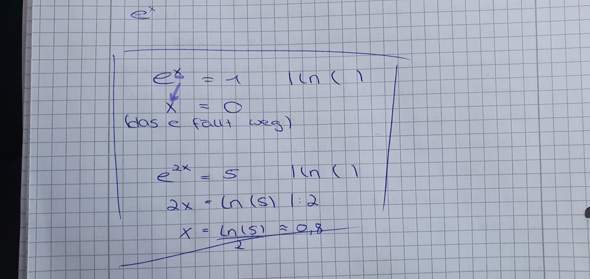 eˣ
eˣ = 1 | ln ( )
x = 0
(das e fällt weg)
e²ˣ = 5 | ln ( )
2x = ln (5) | : 2
x = ln(5)/2 ≈ 0,8